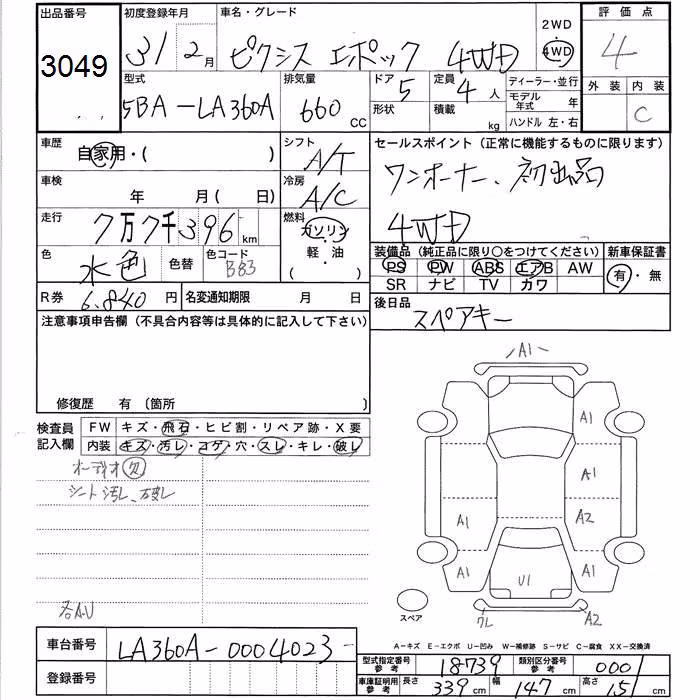 出品番号 初度登録年月 車名・グレード 2WD 評価点
3049 31 2月 ピクシス エポック 4WD 4WD 4
型式 排気量 ドア 5 定員 4人 ディーラー・並行 外装 内装
5BA-LA360A 660 CC 形状 積載 kg モデル年式 年 C
ハンドル 左・右
車歴 自家用・( ) シフト A/T セールスポイント(正常に機能するものに限ります)
車検 年 月( 日) 冷房 A/C ワンオーナー、初出品
走行 7万7千396km 燃料 ガソリン・軽・油 ( ) 4WD
色 水色 色替 色コード B83 装備品(純正品に限り○をつけてください) 新車保証書
PS PW ABS エアB AW 有・無
SR ナビ TV カワ
R券 6,840円 名変通知期限 月 日 後日品
注意事項申告欄(不具合内容等は具体的に記入して下さい) スペアキー
修復歴 有(箇所
検査員記入欄 FW キズ・飛石・ヒビ割・リペア跡・X要
内装 キズ・汚レ・コゲ・穴・スレ・キレ・破レ
オーディオ欠
シート汚レ、破レ
各A.U
A1
A1
A1
A1 A2
A1 U1 A1
スペア ワレ A2
A-キズ E-エクボ U-凹み W-補修跡 S-サビ C-腐食 XX-交換済
車台番号 LA360A-0004023-
登録番号
型式指定番号参考 18739 類別区分番号参考 0001
車庫証明用参考 長さ 339cm 幅 147cm 高さ 151cm